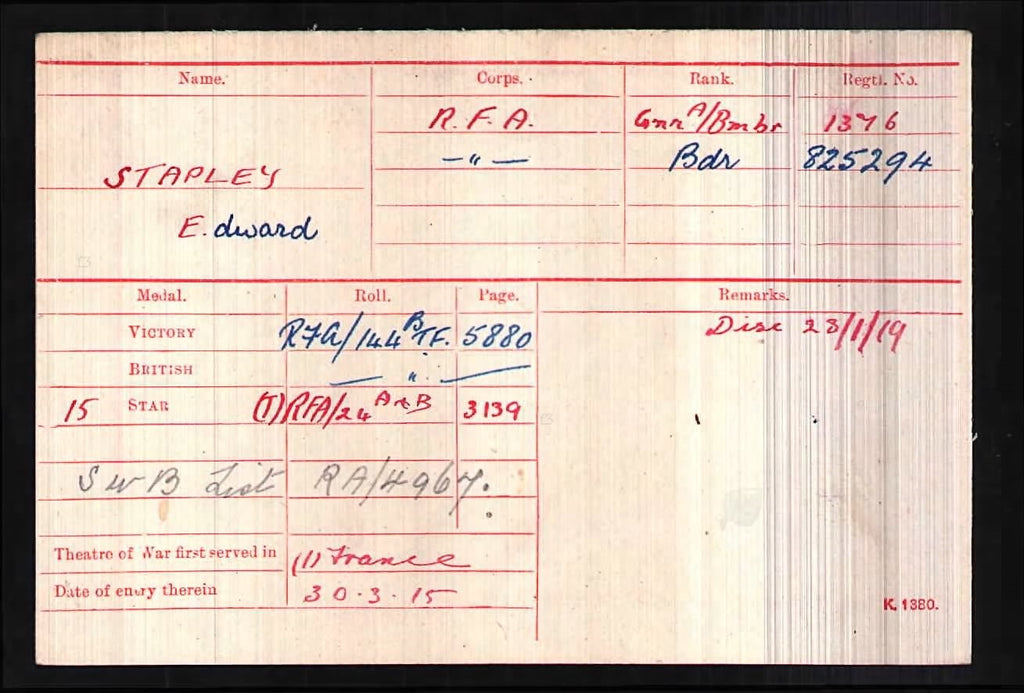 Name. Corps. Rank. Regtl. No.
R.F.A. Gnr A/Bmbr 1376
—"— Bdr 825294
STAPLEY
E.dward
Medal. Roll. Page. Remarks.
VICTORY RFA/144B TF. 5880 Disc 23/1/19
BRITISH — " —
15 STAR (T)RFA/24 A&B 3139
S W B List RA/4967.
Theatre of War first served in (1) France
Date of entry therein 30.3.15
K. 1380.